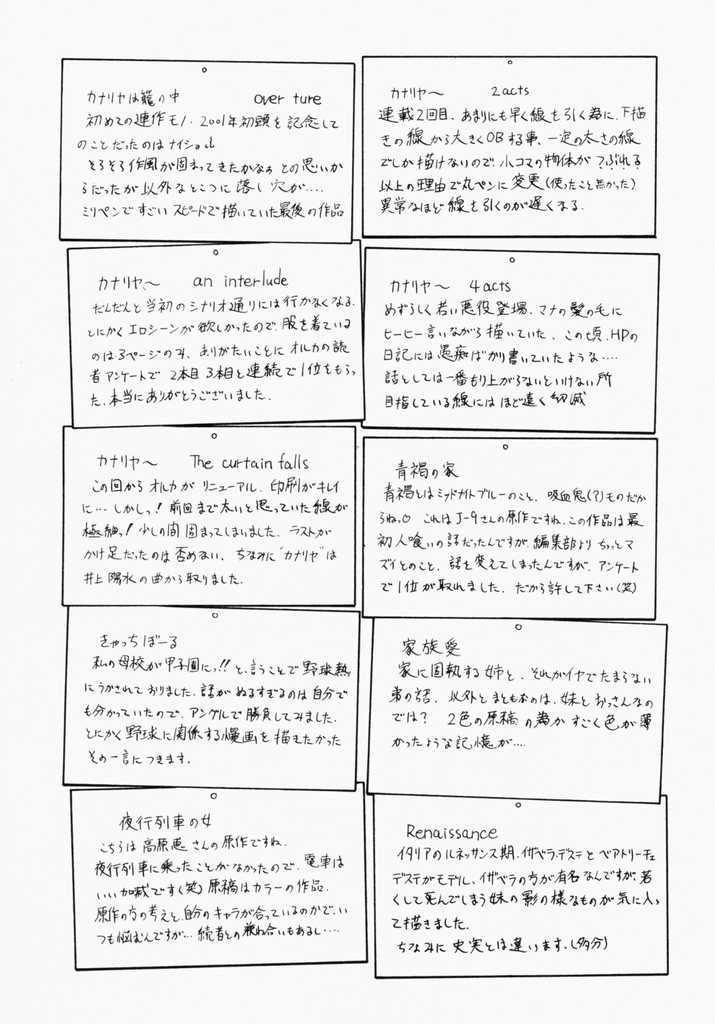 カナリヤは籠の中 over ture
初めての連作モノ・2001年初頭を記念して
のことだったのはナイショ
そろそろ作風が固まってきたかなぁ との思いか
らだったが以外なところに落し穴が‥‥
ミリペンですごいスピードで描いていた最後の作品
カナリヤ〜 2acts
連載2回目、あまりにも早く線を引く為に、下描
きの線から大きくOBする事、一定の太さの線
でしか描けないので、小コマの物体がつぶれる
以上の理由で丸ペンに変更(使ったこと無かった)
異常なほど線を引くのが遅くなる.
カナリヤ〜 an interlude
だんだんと当初のシナリオ通りには行かなくなる.
とにかくエロシーンが欲しかったので、服を着ている
のは3ページのみ、ありがたいことにオルカの読
者アンケートで2本目3本目と連続で1位をもらっ
た.本当にありがとうございました.
カナリヤ〜 4acts
めずらしく若い悪役登場、マナの髪の毛に
ヒーヒー言いながら描いていた、この頃、HPの
日記には愚痴ばかり書いていたような‥‥
話としては一番もり上がらないといけない所
目指している線にはほど遠く
カナリヤ〜 The curtain falls
この回からオルカがリニューアル、印刷がキレイ
に…しかしっ！前回まで太いと思っていた線が
極細っ！少しの間固まってしまいました. ラストが
かけ足だったのは否めない、ちなみに"カナリヤ"は
井上陽水の曲から取りました.
青褐の家
青褐とはミッドナイトブルーのこと、吸血鬼(?)ものだか
らね.○ これはJ-9さんの原作ですね.この作品は最
初人喰いの話だったんですが、編集部よりちょっとマ
ズイとのこと、話を変えてしまったんですが、アンケート
で1位が取れました. だから許して下さい(笑)
きゃっちぼーる
私の母校が甲子園にっ!!と、言うことで野球熱
にうかされておりました.話がぬるすぎるのは自分で
も分かっていたので、アングルで勝負してみました.
とにかく野球に関係する漫画を描きたかった
その一言につきます.
家族愛
家に固執する姉と、それがイヤでたまらない
弟の話. 以外とまともなのは、妹とおっさんなの
では？ 2色の原稿の為かすごく色が薄
かったような記憶が‥‥
夜行列車の女
こちらは高原恵さんの原作ですね.
夜行列車に乗ったことがなかったので、電車は
いい加減です(笑) 原稿はカラーの作品.
原作の方の考えと、自分のキャラが合っているのかで、い
つも悩むんですが… 読者との兼ね合いもあるし‥‥
Renaissance
イタリアのルネッサンス期、イザベラ・デステとベアトリーチェ
デステがモデル、イザベラの方が有名なんですが、若
くして死んでしまう妹の影の様なものが気に入っ
て描きました.
ちなみに史実とは違います.(多分)